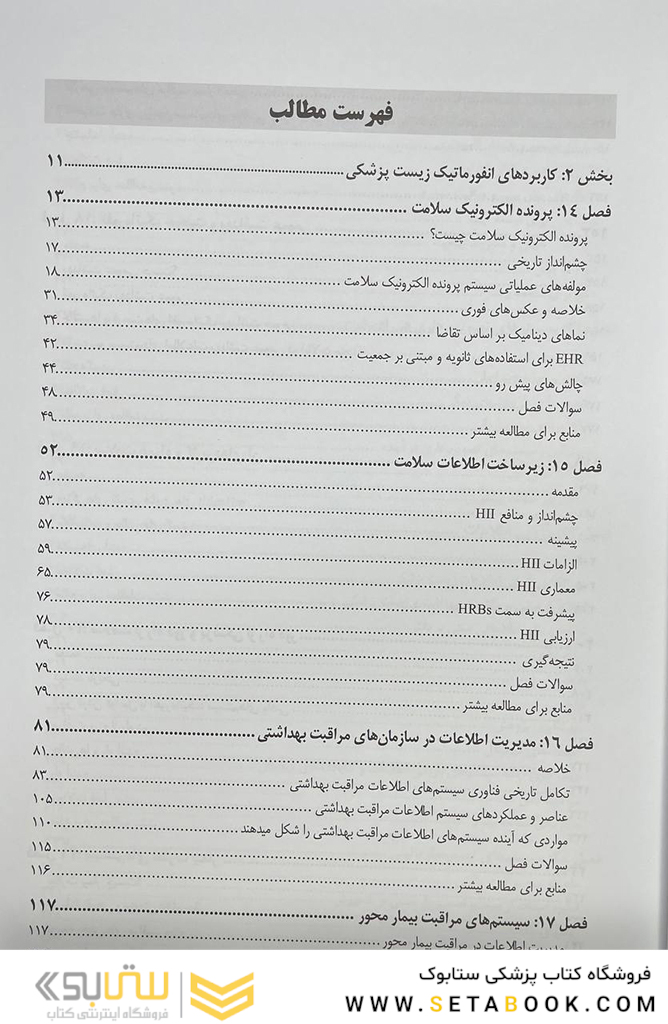 فهرست مطالب
بخش ۲: کاربردهای انفورماتیک زیست پزشکی ۱۱
فصل ۱۴: پرونده الکترونیک سلامت ۱۳
پرونده الکترونیک سلامت چیست؟ ۱۳
چشم‌انداز تاریخی ۱۷
مولفه‌های عملیاتی سیستم پرونده الکترونیک سلامت ۱۸
خلاصه و عکس‌های فوری ۳۱
نماهای دینامیک بر اساس تقاضا ۳۴
EHR برای استفاده‌های ثانویه و مبتنی بر جمعیت ۴۲
چالش‌های پیش رو ۴۴
سوالات فصل ۴۸
منابع برای مطالعه بیشتر ۴۹
فصل ۱۵: زیرساخت اطلاعات سلامت ۵۲
مقدمه ۵۲
چشم‌انداز و منافع HII ۵۳
پیشینه ۵۷
الزامات HII ۵۹
معماری HII ۶۵
پیشرفت به سمت HRBs ۷۶
ارزیابی HII ۷۸
نتیجه‌گیری ۷۹
سوالات فصل ۷۹
منابع برای مطالعه بیشتر ۷۹
فصل ۱۶: مدیریت اطلاعات در سازمان‌های مراقبت بهداشتی ۸۱
خلاصه ۸۱
تکامل تاریخی فناوری سیستم‌های اطلاعات مراقبت بهداشتی ۸۳
عناصر و عملکردهای سیستم اطلاعات مراقبت بهداشتی ۱۰۵
مواردی که آینده سیستم‌های اطلاعات مراقبت بهداشتی را شکل میدهند ۱۱۰
سوالات فصل ۱۱۵
منابع برای مطالعه بیشتر ۱۱۶
فصل ۱۷: سیستم‌های مراقبت بیمار محور ۱۱۷
مدیریت اطلاعات در مراقبت بیمار محور ۱۱۷
فروشگاه کتاب پزشکی ستابوک
WWW.SETABOOK.COM
ستابوک
فروشگاه اینترنتی کتاب